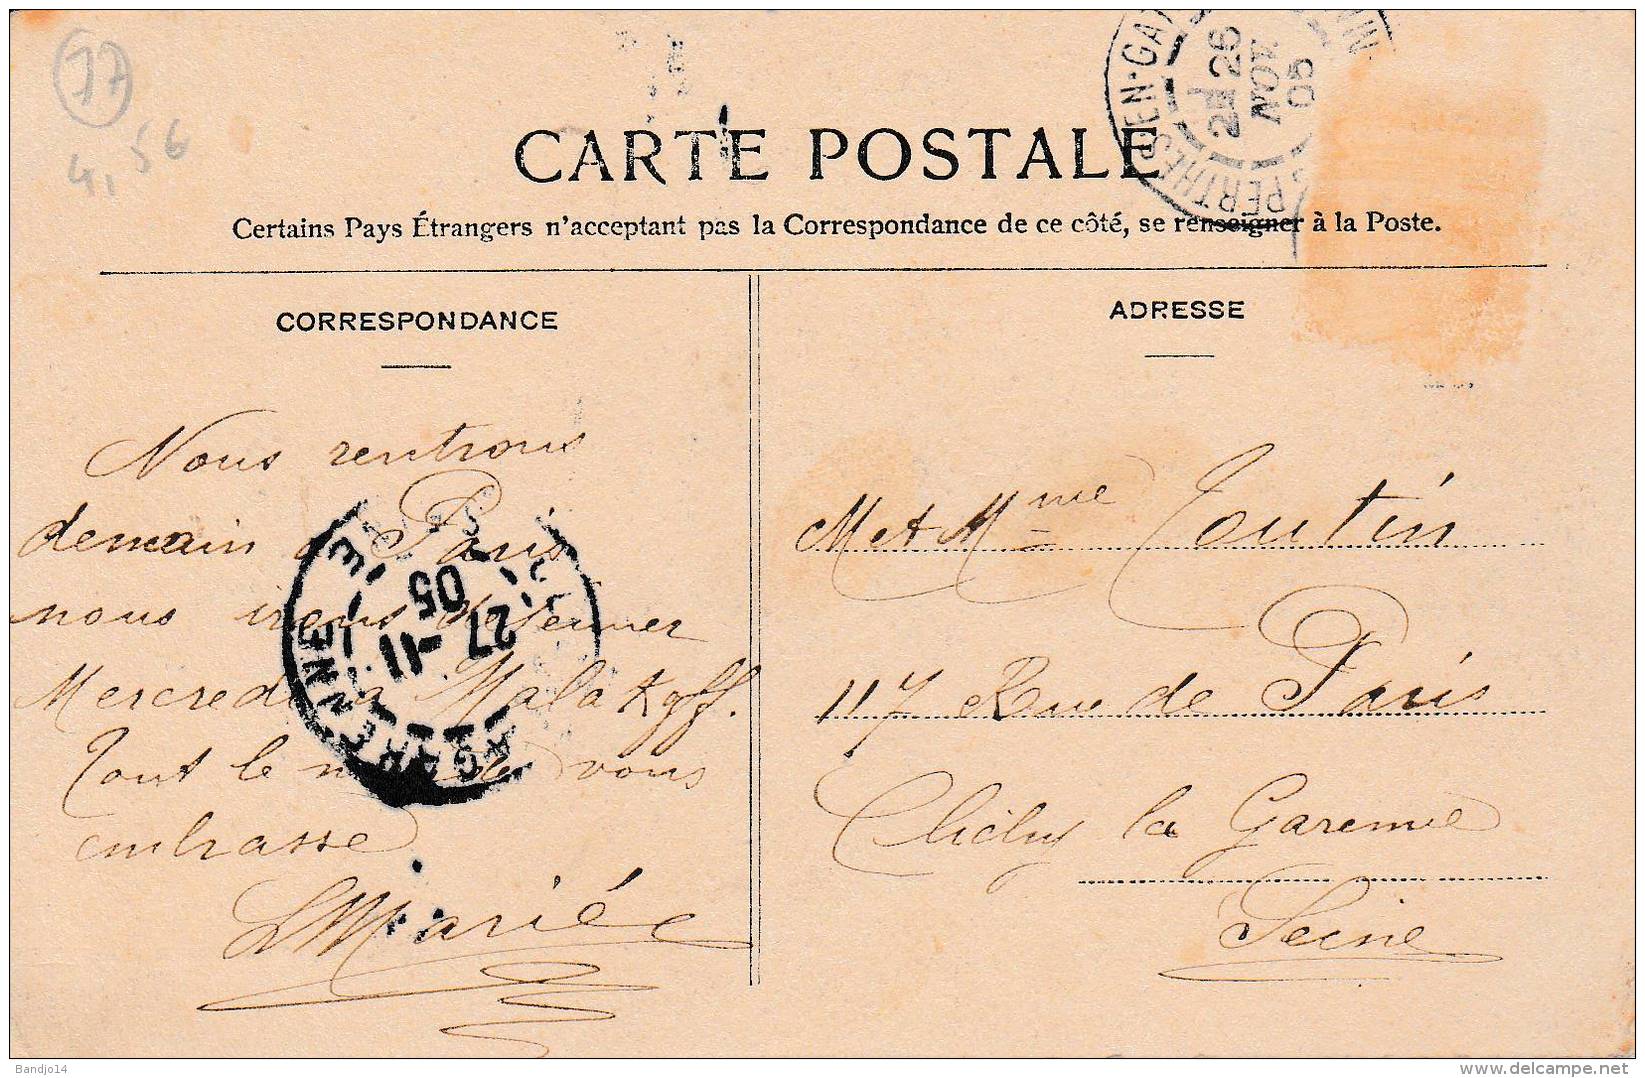 77
4,56
PERTHES-EN-GAT
2E 26
NOV
05
CARTE POSTALE
Certains Pays Étrangers n'acceptant pas la Correspondance de ce côté, se renseigner à la Poste.
CORRESPONDANCE
Nous rentrons
demain à Paris
nous irons déjeuner
Mercredi à Malakoff.
Tout le monde vous
embrasse
L Marié
27 -11
05
GARENNE
ADRESSE
M et Mme Toutin
117 Rue de Paris
Clichy la Garenne
Seine
Bandjo14
delcampe.net